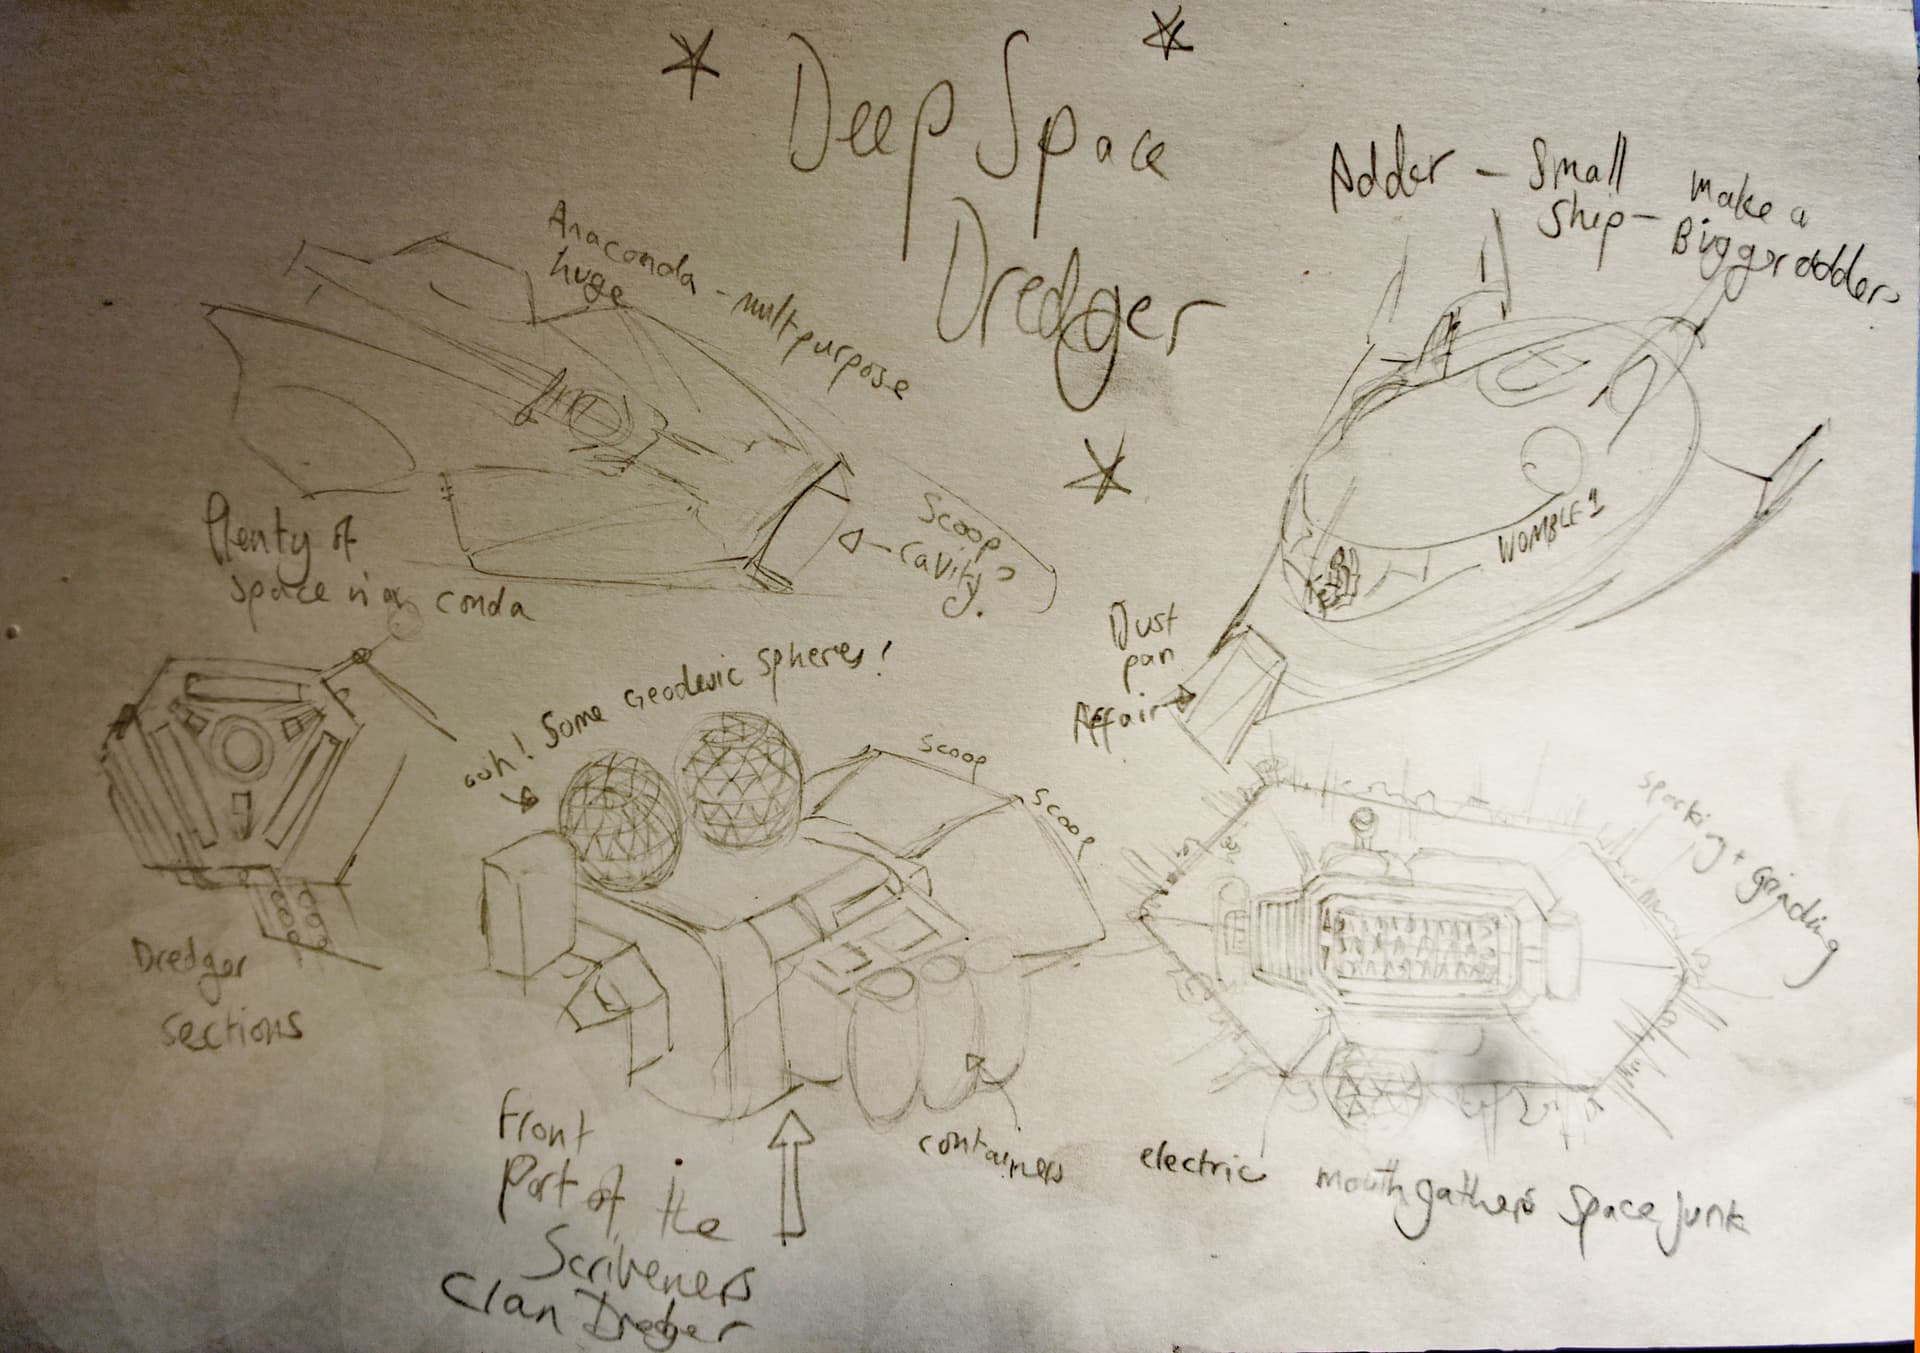 Deep Space
Dredger
Adder - Small
Ship - make a
Bigger adder
Anaconda - multipurpose
huge
Scoop
cavity?
Plenty of
space in an conda
WOMBLE 1
Dust
pan
Affair
ooh! Some Geodesic Spheres!
scoop
scoop
sparking + grinding
Dredger
sections
containers
electric mouth gathers space junk
Front
Part of the
Scriveners
Clan Dredger